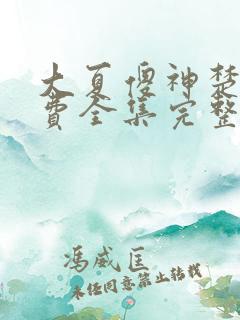 大夏傻神楚
费全集完整
冯威匡
未经同意禁止转载